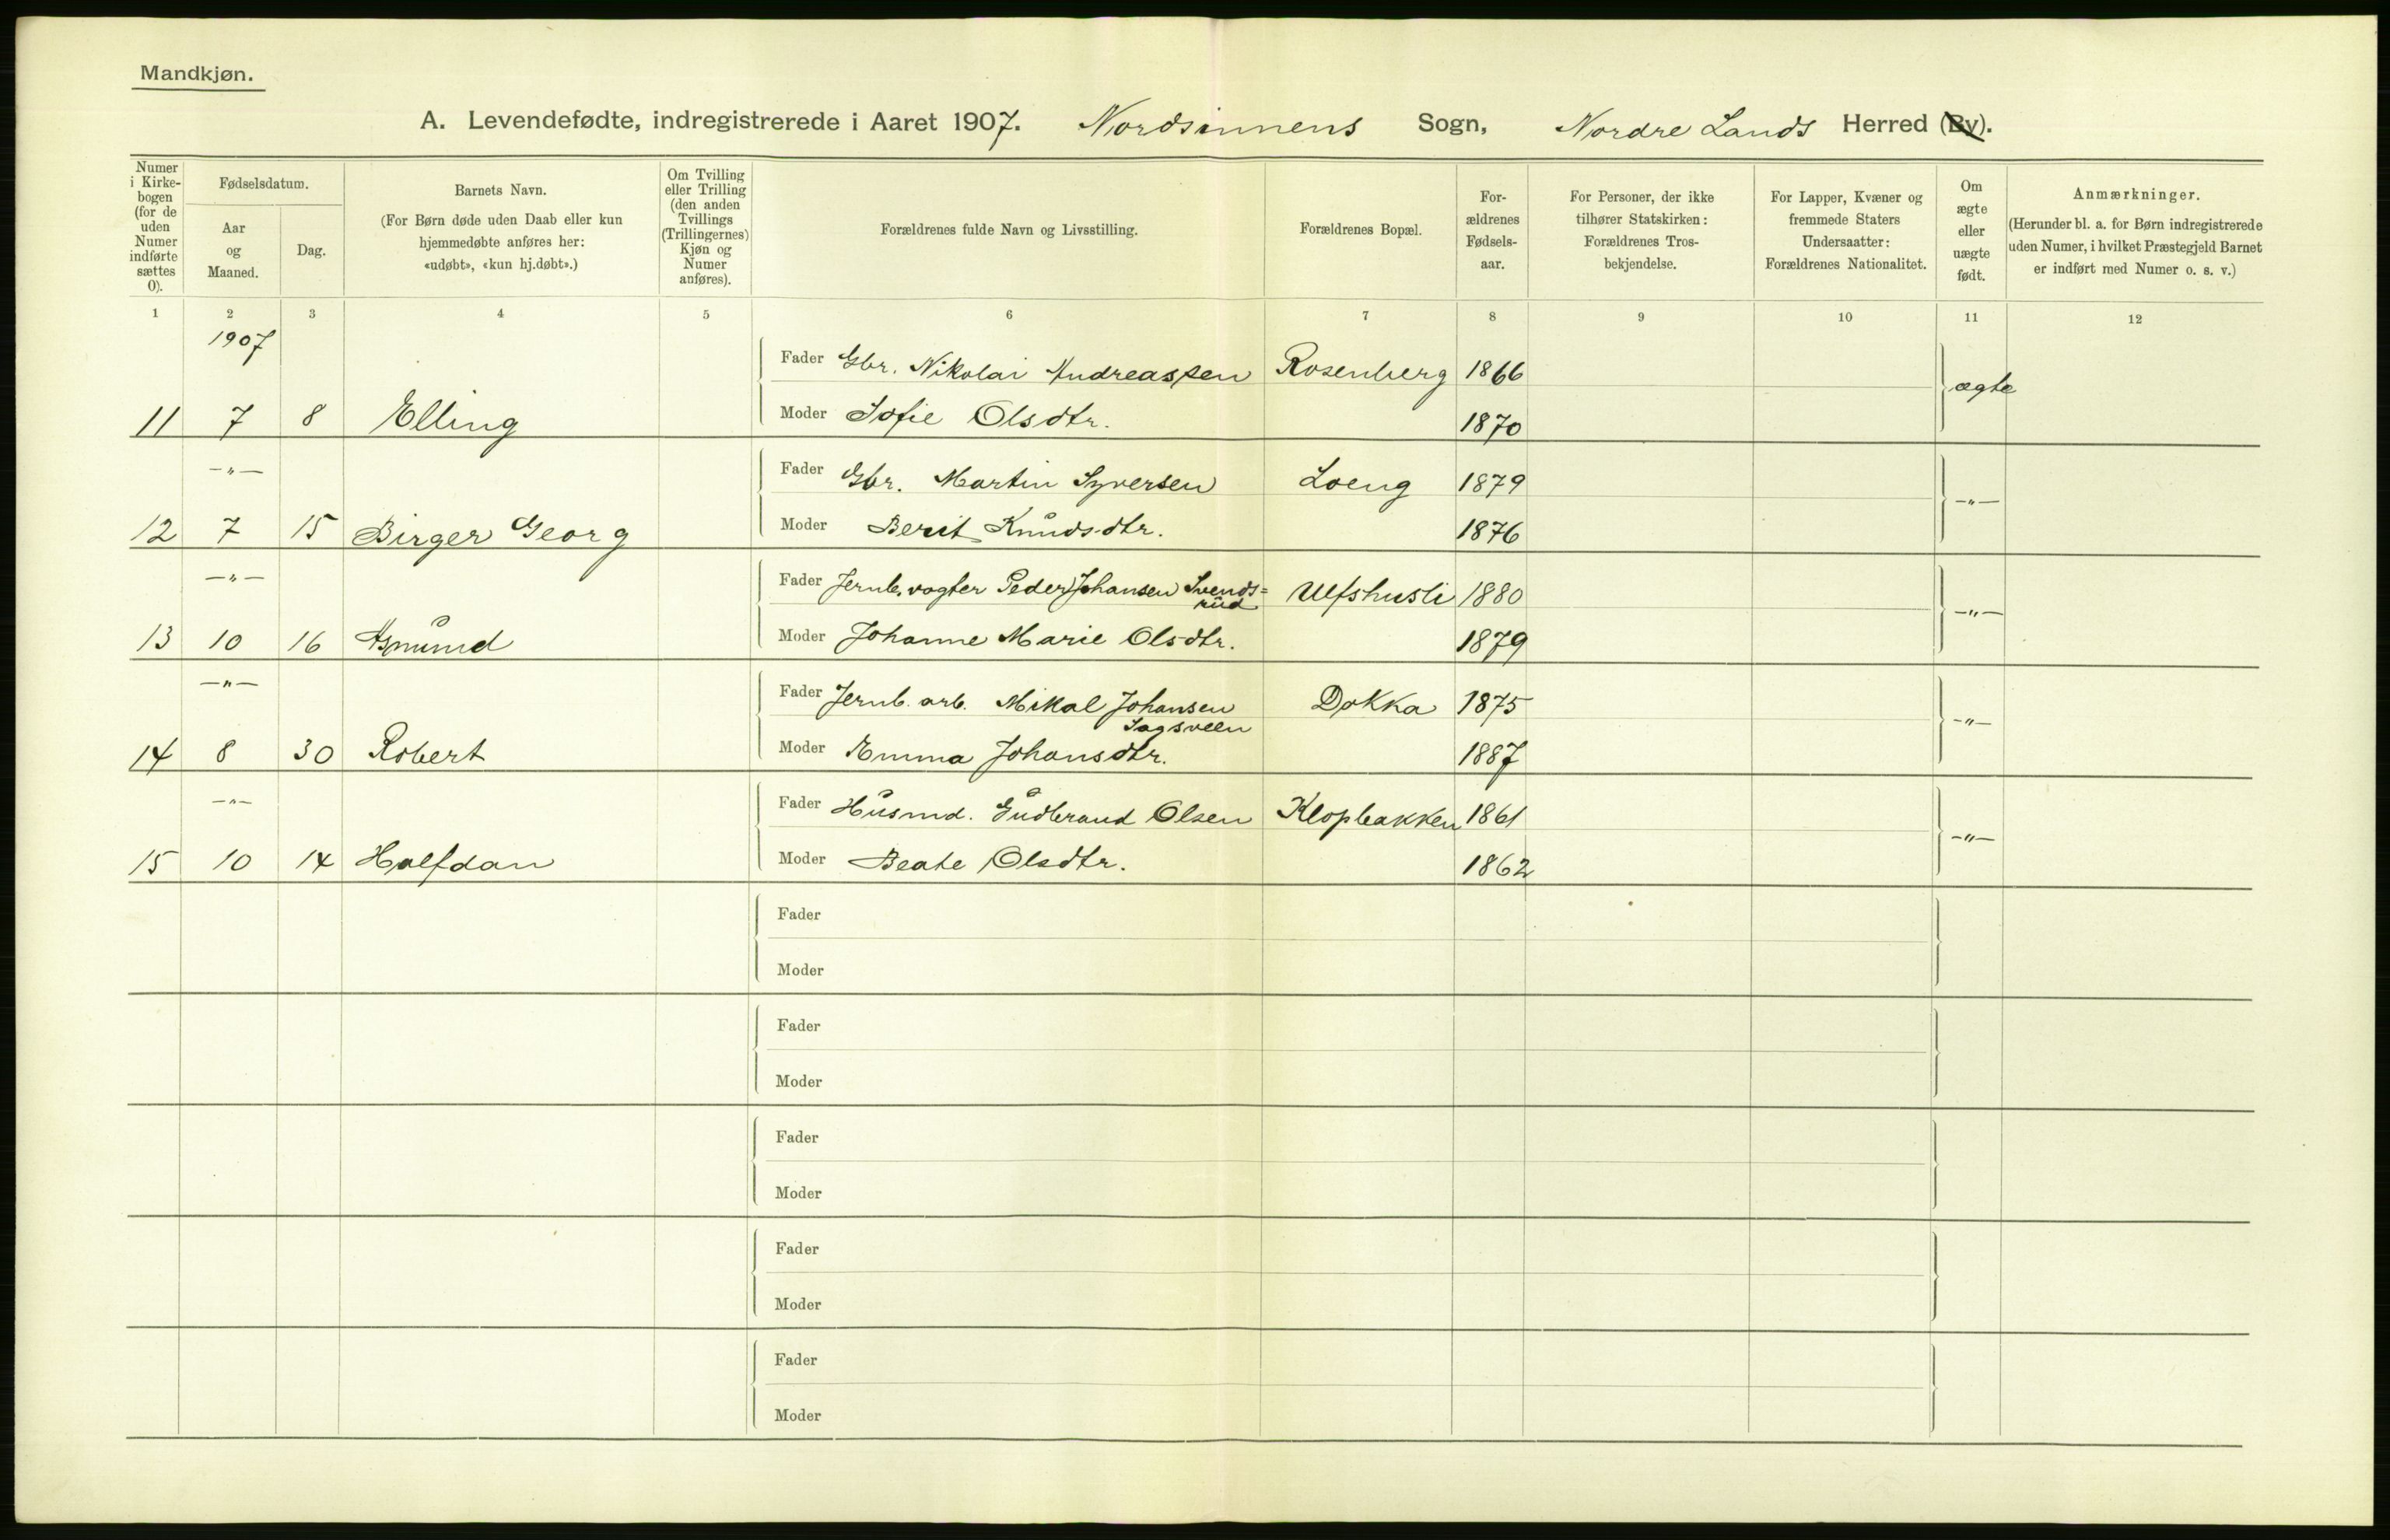 Mandkjøn.
A. Levendefødte, indregistrerede i Aaret 1907. Nordsinnens Sogn, Nordre Lands Herred (By).
Numer i Kirke-bogen (for de uden Numer indførte sættes 0).
Fødselsdatum.
Aar og Maaned.
Dag.
Barnets Navn.
(For Børn døde uden Daab eller kun
hjemmedøbte anføres her:
«udøbt», «kun hj.døbt».)
Om Tvilling
eller Trilling
(den anden
Tvillings
(Trillingernes)
Kjøn og
Numer
anføres).
Forældrenes fulde Navn og Livsstilling.
Forældrenes Bopæl.
For-
ældrenes
Fødsels-
aar.
For Personer, der ikke
tilhører Statskirken:
Forældrenes Tros-
bekjendelse.
For Lapper, Kvæner og
fremmede Staters
Undersaatter:
Forældrenes Nationalitet.
Om
ægte
eller
uægte
født.
Anmærkninger.
(Herunder bl. a. for Børn indregistrerede
uden Numer, i hvilket Præstegjeld Barnet
er indført med Numer o. s. v.)
1 2 3 4 5 6 7 8 9 10 11 12
1907
Fader Gbr. Nikolai Andreassen Rosenberg 1866 ægte
11 7 8 Elling Moder Sofie Olsdtr. 1870
—"— Fader Gbr. Martin Syversen Loeng 1879 —"—
12 7 15 Birger Georg Moder Berit Knudsdtr. 1876
—"— Fader Jernb.vogter Peder Johansen Svends=
rud Ulfshusli 1880 —"—
13 10 16 Asmund Moder Johanne Marie Olsdtr. 1879
—"— Fader Jernb. arb. Mikal Johansen Dokka 1875 —"—
Sagsveen
14 8 30 Robert Moder Emma Johansdtr. 1887
—"— Fader Husmd. Gudbrand Olsen Klopbakken 1861 —"—
15 10 14 Halfdan Moder Beate Olsdtr. 1862
Fader
Moder
Fader
Moder
Fader
Moder
Fader
Moder
Fader
Moder